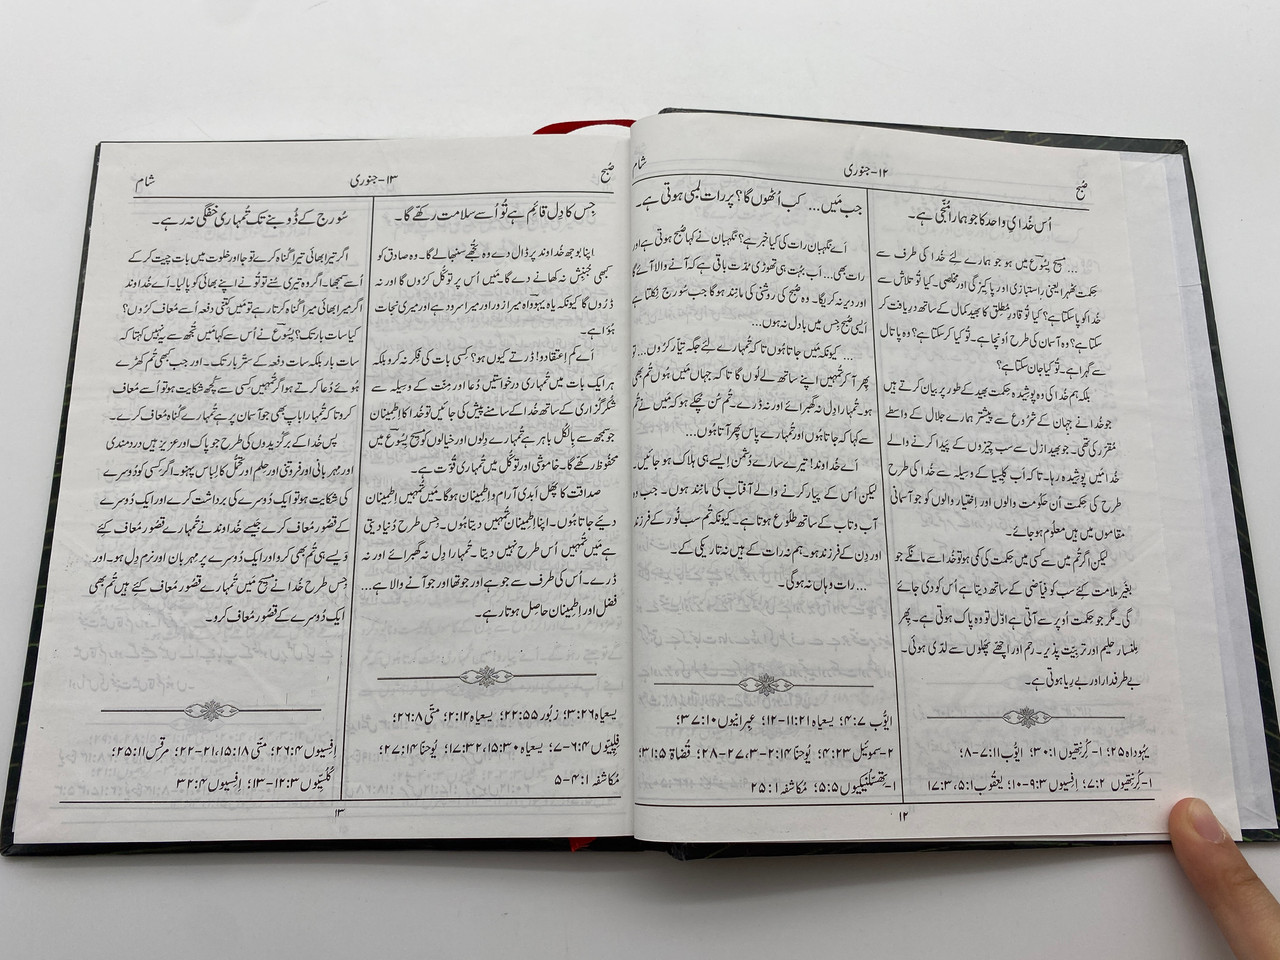 صُبح
۱۲-جنوری
شام
اُس خُدایِ واحد کا جو ہمارا مُنجی ہے۔
... مسیح یسُوع میں ہو جو ہمارے لِئے خُدا کی طرف سے
حِکمت ٹھہرا یعنی راستبازی اور پاکیزگی اور مخلصی۔ کیا تُو تلاش سے
خُدا کو پا سکتا ہے؟ کیا تُو قادرِ مُطلق کا بھید کمال کے ساتھ دریافت کر
سکتا ہے؟ وہ آسمان کی طرح اُونچا ہے۔ تُو کیا کر سکتا ہے؟ وہ پاتال
سے گہرا ہے۔ تُو کیا جان سکتا ہے؟
بلکہ ہم خُدا کی وہ پوشیدہ حِکمت بھید کے طَور پر بیان کرتے ہیں
جو خُدا نے جہان کے شرُوع سے پیشتر ہمارے جلال کے واسطے
مُقرّر کی تھی۔ جو بھید ازل سے سب چیزوں کے پیدا کرنے والے
خُدا میں پوشیدہ رہا۔ تاکہ اب کلِیسیا کے وسیلہ سے خُدا کی طرح
طرح کی حِکمت اُن حکُومت والوں اور اِختیار والوں کو جو آسمانی
مقاموں میں ہیں معلُوم ہو جائے۔
لیکن اگر تُم میں سے کسی میں حِکمت کی کمی ہو تو خُدا سے مانگے جو
بغیر ملامت کِئے سب کو فیاضی کے ساتھ دیتا ہے اُس کو دی جائے
گی۔ مگر جو حِکمت اُوپر سے آتی ہے اوّل تو وہ پاک ہوتی ہے۔ پِھر
مِلنسار حلیم اور تربِیّت پذیر۔ رحم اور اچھّے پھلوں سے لدی ہوئی۔
بے طرفدار اور بے رِیا ہوتی ہے۔
یہوداہ ۲۵؛ ۱-کُرنتھیوں ۱:‏۳۰؛ ایُّوب ۱۱:‏۷-۸؛
۱-کُرنتھیوں ۲:‏۷؛ اِفسیوں ۳:‏۹-۱۰؛ یعقُوب ۱:‏۵، ۳:‏۱۷
جب مَیں... کب اُٹھوں گا؟ پر رات لمبی ہوتی ہے۔
اَے نگہبان رات کی کیا خبر ہے؟ نگہبان نے کہا صُبح ہوتی ہے اور
رات بھی... اَب بہُت ہی تھوڑی مُدّت باقی ہے کہ آنے والا آئے گا
اور دیر نہ کریگا۔ وہ صُبح کی روشنی کی مانِند ہو گا جب سُورج نِکلتا ہے
اَیسی صُبح جِس میں بادل نہ ہوں...
... کیونکہ مَیں جاتا ہُوں تاکہ تُمہارے لِئے جگہ تیّار کرُوں... تو
پِھر آ کر تُمہیں اپنے ساتھ لے لُوں گا تاکہ جہاں مَیں ہُوں تُم بھی
ہو۔ تُمہارا دِل نہ گھبرائے اور نہ ڈرے۔ تُم سُن چُکے ہو کہ مَیں نے تُم
سے کہا کہ جاتا ہُوں اور تُمہارے پاس پِھر آتا ہُوں...
اَے خُداوند! تیرے سارے دُشمن اَیسے ہی ہلاک ہو جائیں۔
لیکن اُس کے پیار کرنے والے آفتاب کی مانِند ہوں۔ جب وہ
آب و تاب کے ساتھ طلُوع ہوتا ہے۔ کیونکہ تُم سب نُور کے فرزند
اور دِن کے فرزند ہو۔ ہم نہ رات کے ہیں نہ تارِیکی کے۔
... رات وہاں نہ ہو گی۔
ایُّوب ۷:‏۴؛ یسعیاہ ۲۱:‏۱۱-۱۲؛ عِبرانیوں ۱۰:‏۳۷؛
۲-سموئیل ۲۳:‏۴؛ یُوحنّا ۱۴:‏۲-۳، ۲۷-۲۸؛ قُضاۃ ۵:‏۳۱؛
۱-تھِسّلُنیکیوں ۵:‏۵؛ مُکاشفہ ۲۱:‏۲۵
۱۲
صُبح
۱۳-جنوری
شام
جِس کا دِل قائِم ہے تُو اُسے سلامت رکھّے گا۔
اپنا بوجھ خُداوند پر ڈال دے وہ تُجھے سنبھالے گا۔ وہ صادِق کو
کبھی جُنبِش نہ کھانے دے گا۔ مَیں اُس پر توکُّل کرُوں گا اور نہ
ڈرُوں گا کیونکہ یاہ یہوواہ میرا زور اور میرا سرود ہے اور میری نجات
ہُؤا ہے۔
اَے کم اعتقادو! ڈرتے کیوں ہو؟ کِسی بات کی فِکر نہ کرو بلکہ
ہر ایک بات میں تُمہاری درخواستیں دُعا اور مِنّت کے وسِیلہ سے
شُکرگُزاری کے ساتھ خُدا کے سامنے پیش کی جائیں تو خُدا کا اِطمینان
جو سمجھ سے بِالکُل باہر ہے تُمہارے دِلوں اور خیالوں کو مسیح یسُوع میں
محفُوظ رکھّے گا۔ خاموشی اور توکُّل میں تُمہاری قُوّت ہے۔
صداقت کا پھل اَبدی آرام و اِطمینان ہو گا۔ مَیں تُمہیں اِطمینان
دِئے جاتا ہُوں۔ اپنا اِطمینان تُمہیں دیتا ہُوں۔ جِس طرح دُنیا دیتی
ہے مَیں تُمہیں اُس طرح نہیں دیتا۔ تُمہارا دِل نہ گھبرائے اور نہ
ڈرے۔ اُس کی طرف سے جو ہے اور جو تھا اور جو آنے والا ہے...
فضل اور اِطمینان حاصِل ہوتا رہے۔
یسعیاہ ۲۶:‏۳؛ زبُور ۵۵:‏۲۲؛ یسعیاہ ۱۲:‏۲؛ متّی ۸:‏۲۶؛
فِلپّیوں ۴:‏۶-۷؛ یسعیاہ ۳۰:‏۱۵، ۳۲:‏۱۷؛ یُوحنّا ۱۴:‏۲۷؛
مُکاشفہ ۱:‏۴-۵
سُورج کے ڈُوبنے تک تُمہاری خفگی نہ رہے۔
اگر تیرا بھائی تیرا گُناہ کرے تو جا اور خلوت میں بات چِیت کر کے
اُسے سمجھا۔ اگر وہ تیری سُنے تو تُو نے اپنے بھائی کو پا لیا۔ اَے خُداوند
اگر میرا بھائی میرا گُناہ کرتا رہے تو مَیں کِتنی دفعہ اُسے مُعاف کرُوں؟
کیا سات بار تک؟ یسُوع نے اُس سے کہا مَیں تُجھ سے یہ نہیں کہتا کہ
سات بار بلکہ سات دفعہ کے ستّر بار تک۔ اور جب کبھی تُم کھڑے
ہُوئے دُعا کرتے ہو اگر تُمہیں کِسی سے کُچھ شکایت ہو تو اُسے مُعاف
کرو تاکہ تُمہارا باپ بھی جو آسمان پر ہے تُمہارے گُناہ مُعاف کرے۔
پس خُدا کے برگُزیدوں کی طرح جو پاک اور عزیز ہیں دردمندی
اور مہربانی اور فروتنی اور حِلم اور تحمُّل کا لِباس پہنو۔ اگر کِسی کو دُوسرے
کی شکایت ہو تو ایک دُوسرے کی برداشت کرے اور ایک دُوسرے
کے قصُور مُعاف کرے جَیسے خُداوند نے تُمہارے قصُور مُعاف کِئے
وَیسے ہی تُم بھی کرو اور ایک دُوسرے پر مہربان اور نرم دِل ہو۔ اور
جِس طرح خُدا نے مسیح میں تُمہارے قصُور مُعاف کِئے ہیں تُم بھی
ایک دُوسرے کے قصُور مُعاف کرو۔
اِفسیوں ۴:‏۲۶؛ متّی ۱۸:‏۱۵، ۲۱-۲۲؛ مرقس ۱۱:‏۲۵؛
کُلسّیوں ۳:‏۱۲-۱۳؛ اِفسیوں ۴:‏۳۲
۱۳